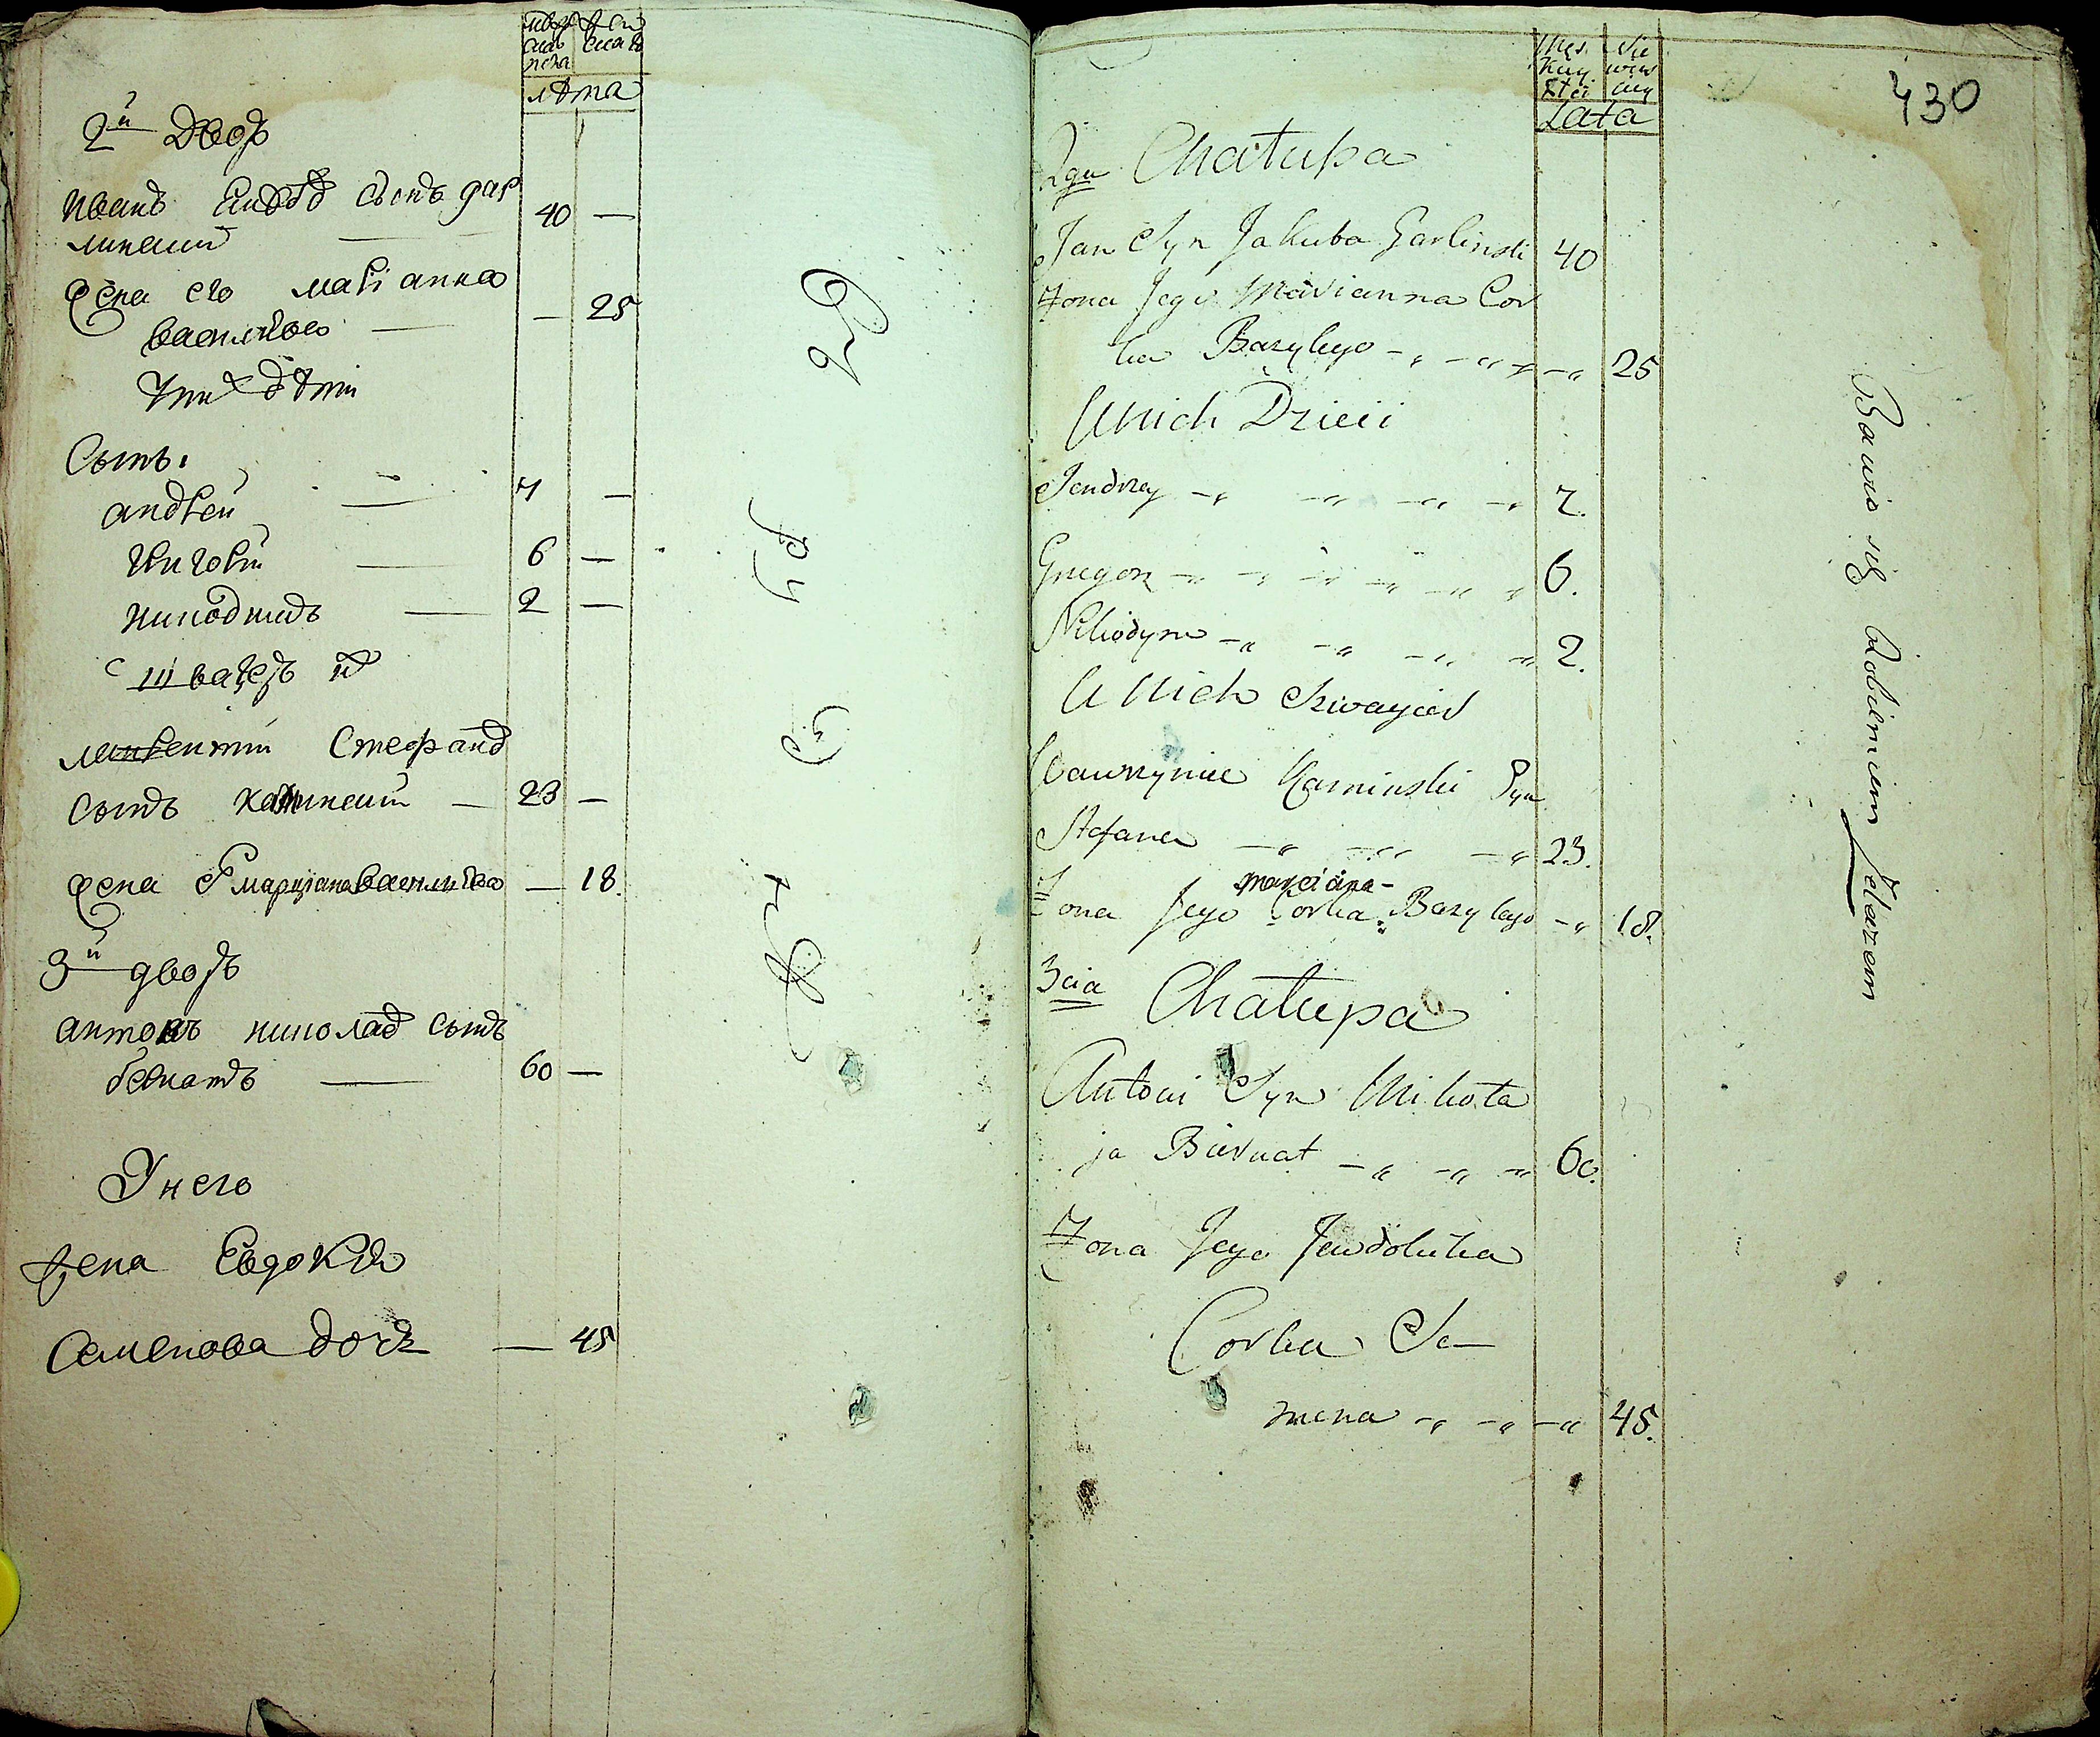 лѣта
2й Дворъ
Иванъ сынъ гар
линский 40 —
жена его марианна
василіова — — 25
У них дѣти
Сыны
андрей — 7 —
григорий — 6 —
никодимъ — 2 —
швагеръ их
Стефанов
сынъ каминский — 23 —
жена Его марцiана василиова — 18.
3й дворъ
антонъ николаев сынъ
бернатъ — 60 —
У него
жена Евдокия
Семенова дочь — 45
430
Męs
kiey
Płci
Lata
2ga Chałupa
Jan Syn Jakuba Garlinski 40
Żona Jego Marianna Cor
ka Bazylego 25
U nich Dzieci
Jendrzey 7.
Gregorz 6.
Nikodym 2.
U Nich Szwagier
Wawrzyniec Kaminski Syn
Stefana 23.
marciana
Żona Jego Corka Bazylego 18.
3cia Chałupa
Antoni Syn Mikoła
ja Biernat 60.
Żona Jego Jewdokika
Corka Se
mena 45.
Bawio się Robieniem Żelazem